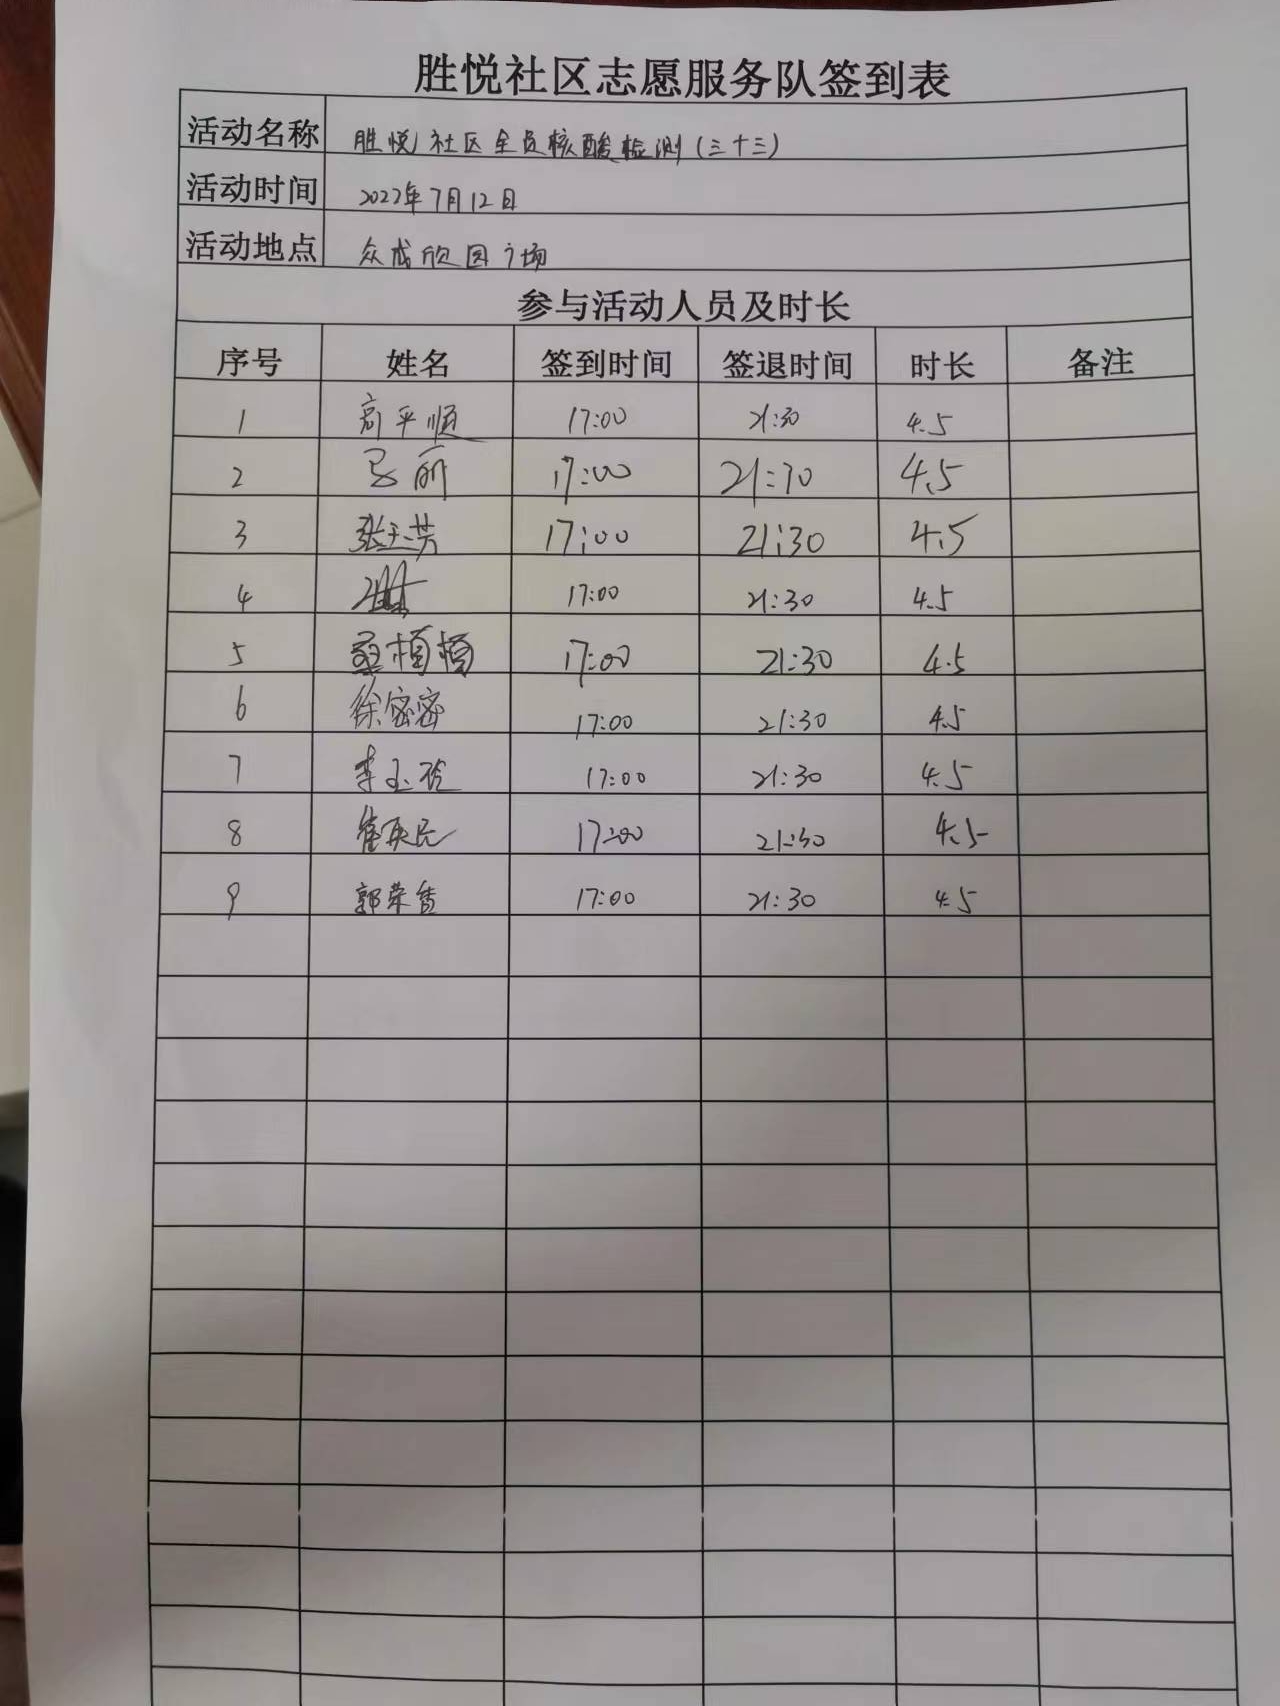 胜悦社区志愿服务队签到表
活动名称 胜悦社区全员核酸检测(三十三)
活动时间 2022年7月12日
活动地点 众成欣园广场
参与活动人员及时长
序号 姓名 签到时间 签退时间 时长 备注
1 高平顺 17:00 21:30 4.5
2 丽 17:00 21:30 4.5
3 张玉芳 17:00 21:30 4.5
4 17:00 21:30 4.5
5 17:00 21:30 4.5
6 徐密密 17:00 21:30 4.5
7 李玉玲 17:00 21:30 4.5
8 崔英民 17:00 21:30 4.5
9 郭荣香 17:00 21:30 4.5